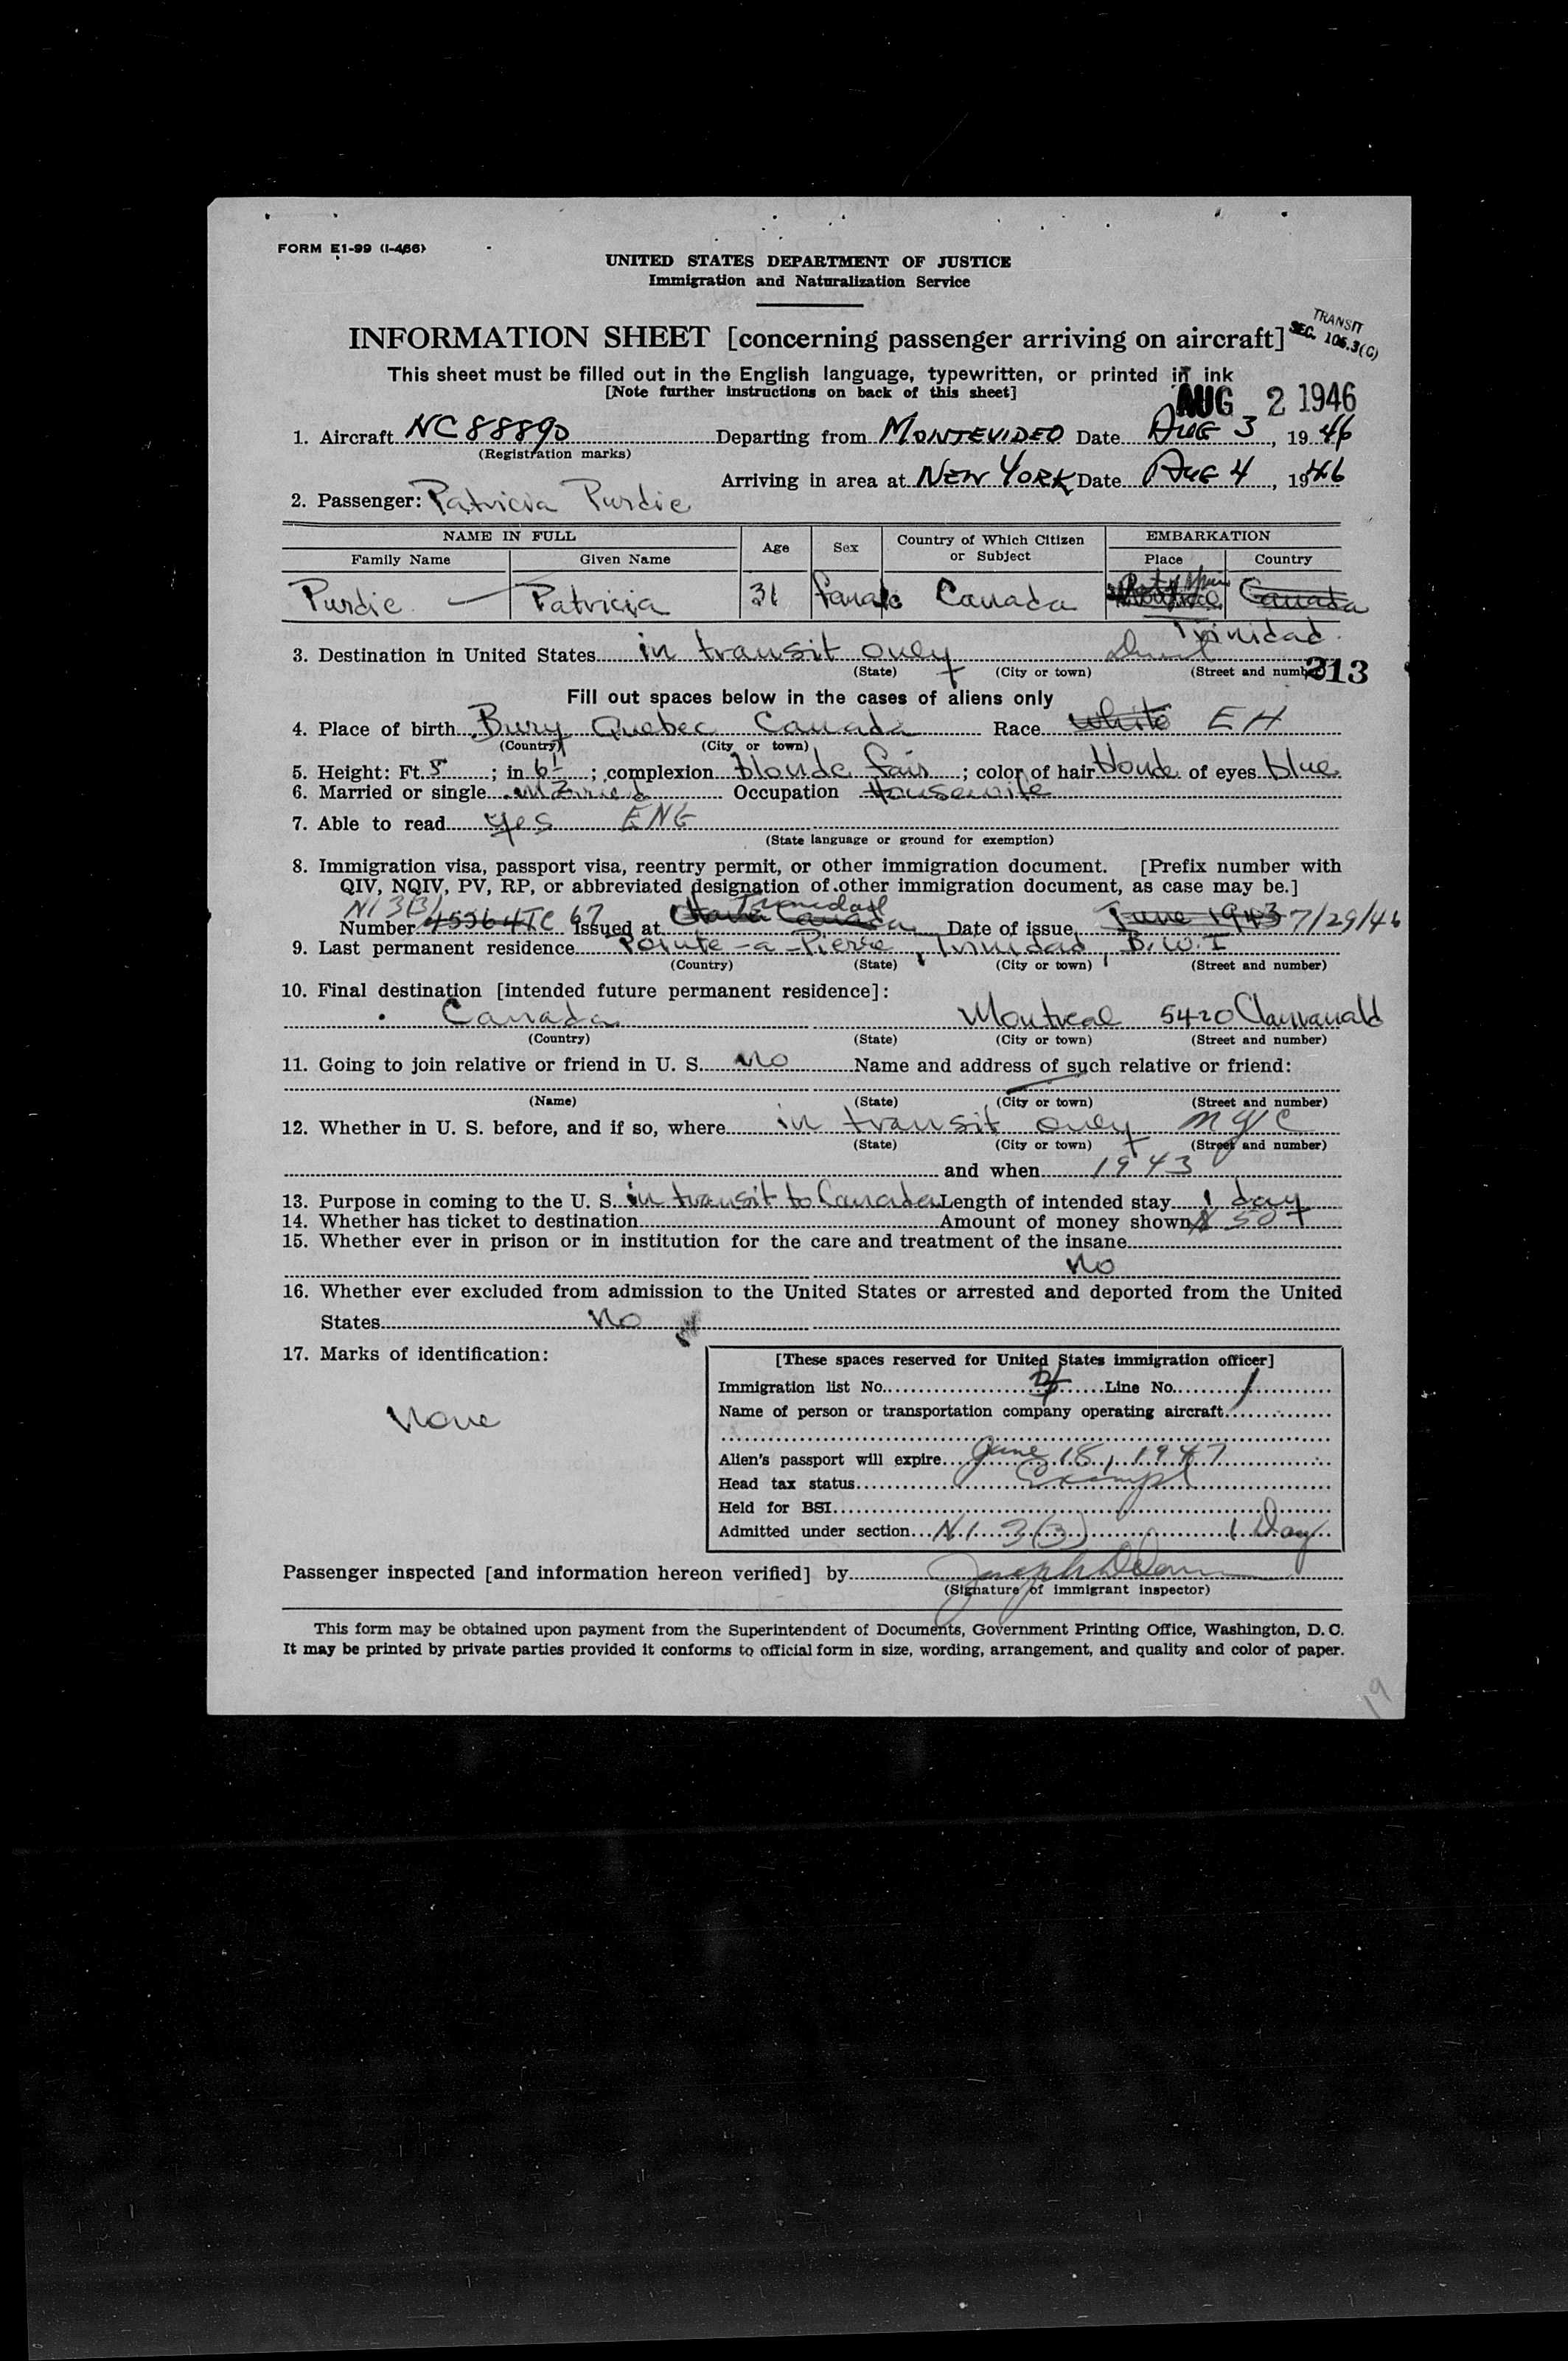 FORM E1-99 (I-466)
UNITED STATES DEPARTMENT OF JUSTICE
Immigration and Naturalization Service
INFORMATION SHEET [concerning passenger arriving on aircraft]
TRANSIT
SEC. 105.3(C)
This sheet must be filled out in the English language, typewritten, or printed in ink
[Note further instructions on back of this sheet]
AUG 2 1946
1. Aircraft NC 88890 Departing from MONTEVIDEO Date AUG 3, 1946
(Registration marks)
Arriving in area at NEW YORK Date AUG 4, 1946
2. Passenger: Patricia Purdie
NAME IN FULL Age Sex Country of Which Citizen or Subject EMBARKATION
Family Name Given Name Place Country
Purdie Patricia 31 female Canada Port Spain Canada
Trinidad
3. Destination in United States in transit only
(State) (City or town) (Street and number)
213
Fill out spaces below in the cases of aliens only
4. Place of birth Bury Quebec Canada Race White EH
(Country) (City or town)
5. Height: Ft. 5; in 6½; complexion blonde fair; color of hair blonde of eyes blue
6. Married or single married Occupation Housewife
7. Able to read yes ENG
(State language or ground for exemption)
8. Immigration visa, passport visa, reentry permit, or other immigration document. [Prefix number with
QIV, NQIV, PV, RP, or abbreviated designation of other immigration document, as case may be.]
NI 3(3) Trinidad
Number 45364 TC 67 Issued at Ottawa Canada Date of issue June 1943 7/29/46
9. Last permanent residence Pointe-a-Pierre, Trinidad, B.W.I
(Country) (State) (City or town) (Street and number)
10. Final destination [intended future permanent residence]:
Canada Montreal 5420
(Country) (State) (City or town) (Street and number)
11. Going to join relative or friend in U. S. No Name and address of such relative or friend:
(Name) (State) (City or town) (Street and number)
12. Whether in U. S. before, and if so, where in transit only NYC
(State) (City or town) (Street and number)
and when 1943
13. Purpose in coming to the U. S. in transit to Canada Length of intended stay 1 day
14. Whether has ticket to destination Amount of money shown $ 50
15. Whether ever in prison or in institution for the care and treatment of the insane
No
16. Whether ever excluded from admission to the United States or arrested and deported from the United
States No
17. Marks of identification:
None
[These spaces reserved for United States immigration officer]
Immigration list No. Line No. 1
Name of person or transportation company operating aircraft
Alien's passport will expire June 18, 1947
Head tax status Exempt
Held for BSI
Admitted under section NI 3(3) 1 Day
Passenger inspected [and information hereon verified] by
(Signature of immigrant inspector)
This form may be obtained upon payment from the Superintendent of Documents, Government Printing Office, Washington, D. C.
It may be printed by private parties provided it conforms to official form in size, wording, arrangement, and quality and color of paper.
19